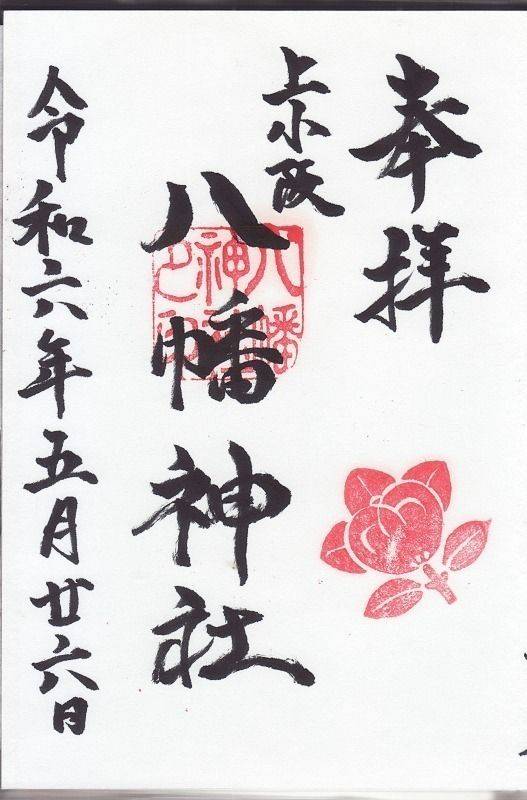 奉拝
上小阪
八幡神社
八幡神社之印
令和六年五月廿六日